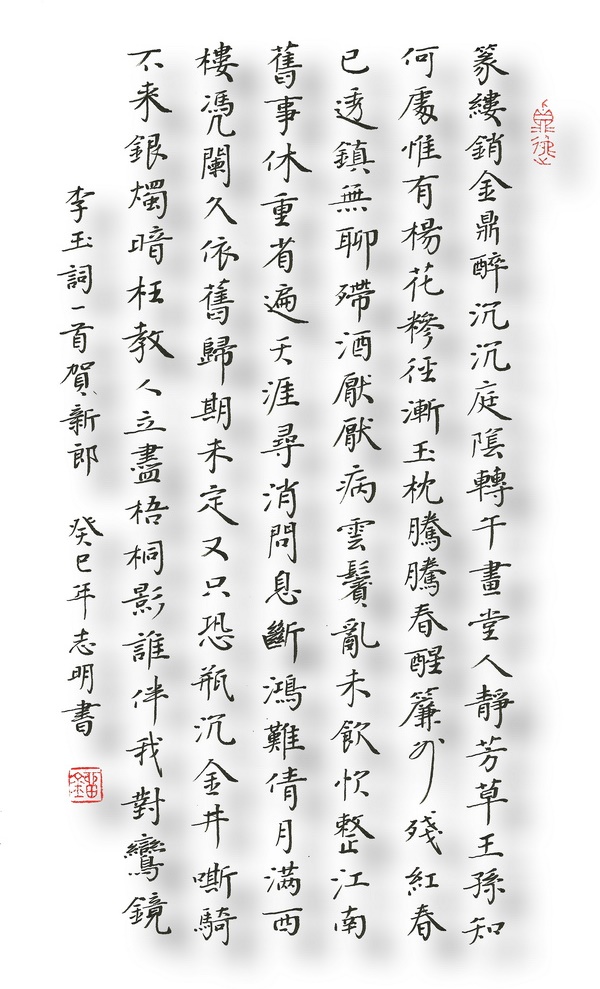 篆縷銷金鼎醉沉沉庭陰轉午畫堂人靜芳草王孫知
何處惟有楊花糝徑漸玉枕騰騰春醒簾外殘紅春
已透鎮無聊殢酒厭厭病雲鬢亂未飲忺整江南
舊事休重省遍天涯尋消問息斷鴻難倩月滿西
樓憑闌久依舊歸期未定又只恐瓶沉金井嘶騎
不來銀燭暗枉教人立盡梧桐影誰伴我對鸞鏡
李玉詞一首賀新郎 癸巳年志明書